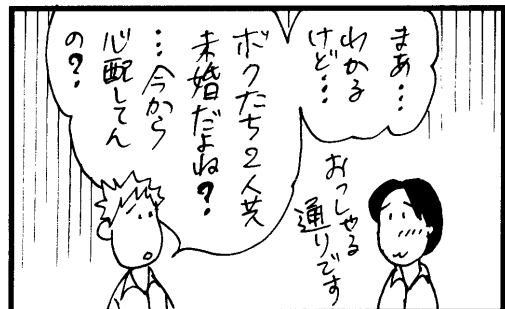 まあ…
わかる
けど…
ボクたち2人共
未婚だよね?
…今から
心配してん
の?
おっしゃる
通りです